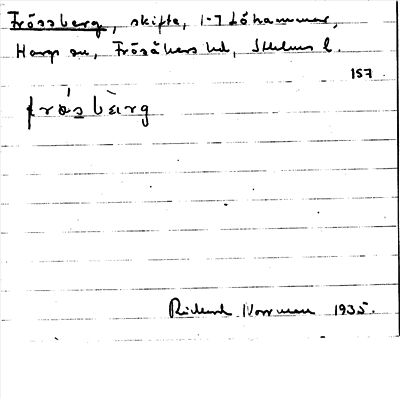 Frössberg, skifte, 1-7 Löhammar,
Hargs sn, Frösåkers hd, Sthlms l.
157.
frø̀sbèrg
Rickard Norrman 1935.